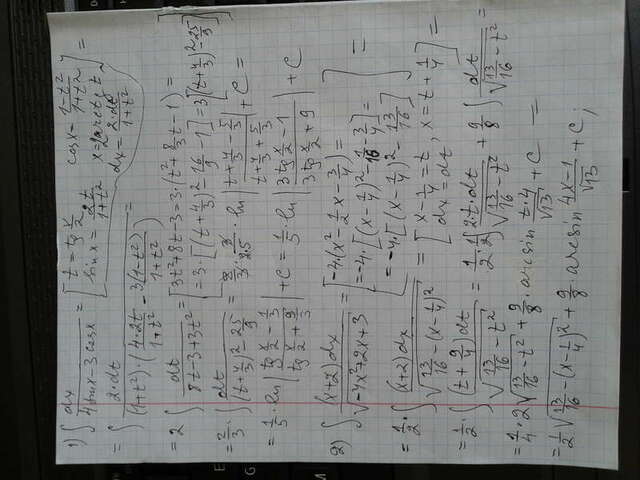 1) ∫ dx / (4sinx - 3cosx) = [ t = tg x/2   cosx = (1-t²)/(1+t²)
sinx = 2t/(1+t²)   x = 2arctg t   dx = 2·dt/(1+t²) ] =
= ∫ 2·dt / ((1+t²)·(4·2t/(1+t²) - 3(1-t²)/(1+t²))) =
= 2 ∫ dt / (8t-3+3t²) = [ 3t²+8t-3 = 3·(t²+8/3 t-1) =
= 3·[(t+4/3)² - 16/9 - 1] = 3[(t+4/3)² - 25/9] ]
= 2/3 · ∫ dt / ((t+4/3)² - 25/9) = 2/3 · 3/(2·5) · ln | (t+4/3-5/3) / (t+4/3+5/3) | + C =
= 1/5 · ln | (tg x/2 - 1/3) / (tg x/2 + 9/3) | + C = 1/5 · ln | (3tg x/2 - 1) / (3tg x/2 + 9) | + C
2) ∫ (x+2)dx / √(-4x²+2x+3) = [ -4(x² - 1/2 x - 3/4) =
= -4·[(x-1/4)² - 1/16 - 3/4] =
= -4·[(x-1/4)² - 13/16] ] =
= 1/2 · ∫ (x+2)dx / √(13/16 - (x-1/4)²) = [ x - 1/4 = t, x = t + 1/4
dx = dt ] =
= 1/2 · ∫ (t+9/4)dt / √(13/16 - t²) = 1/2 · 1/2 ∫ 2t·dt / √(13/16 - t²) + 9/8 ∫ dt / √(13/16 - t²) =
= 1/4 · 2√(13/16 - t²) + 9/8 · arcsin t·4/√13 + C =
= 1/2 √(13/16 - (x-1/4)²) + 9/8 · arcsin (4x-1)/√13 + C;